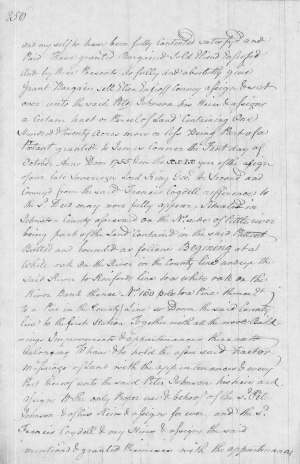 250
and my self to have been fully Contented satisfyd and
Paid Have granted Bargained Sold Aliend Enfeofd
And by these Presents do fully and absolutely give
Grant Bargain sell Alien Enfeoff Convey assign &
over unto the said Peter Johnson his Heirs & assigns
a Certain tract or Parcel of Land Containing One
Hundred & twenty Acres more or less Being Part of a
Patent granted to James Connor the First day of
October Anno Dom 1755 in the year of the reign
of our late Sovereign Lord King Geo: the Second and
Convey'd from the said Francis Cogdell reference to
the Sd. Deed may more fully appear. Situated in
Johnston County aforesaid on the No. side of Little river
being part of the Land Contained in the said Patent
Butted and bounded as follows Begining at a
White oak on the River in the County line and up the
said River to line to a white oak on the
River Bank thence No. 160 pole to a Pine thence
to a Pine in the County Line so Down the said County
line to the first Station Together with all the
Improvements & appurtenances thereunto
belonging To have & to hold the afore said tract or
Messuage of Land with the appurtenances & every
Part thereof unto the said Peter Johnson his heirs and
assigns to the only Proper use & behoof of the Sd. Peter
Johnson & of his Heirs & assigns for ever and the Sd.
Francis Cogdell & my Heirs & assigns the said
mentiond & granted Premises with the appurtenances